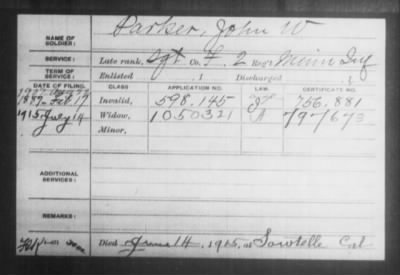 NAME OF SOLDIER: Parker, John W
SERVICE: Late rank, Sgt Co. F, 2 Reg't Minn Inf
TERM OF SERVICE: Enlisted , 1 Discharged , 1
DATE OF FILING. CLASS. APPLICATION NO. LAW. CERTIFICATE NO.
1887 Feb 17 Invalid, 598.145 756.881
1915 July 14 Widow, 1050321 A 797673
Minor,
ADDITIONAL SERVICES:
REMARKS:
Died June 14, 1915, at Sawtelle Cal